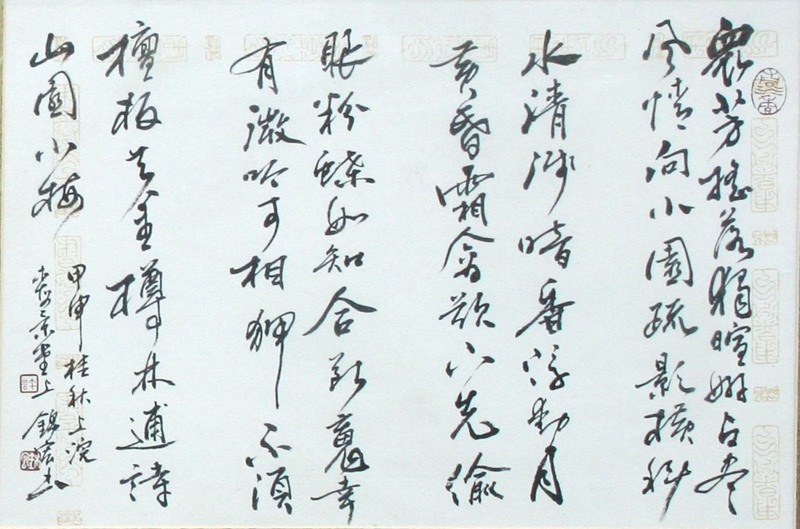 眾芳搖落獨暄妍占尽
风情向小園疏影横斜
水清浅暗香浮動月
黄昏霜禽欲下先偷
眼粉蝶如知合断魂幸
有微吟可相狎不須
檀板共金樽林逋詩
山園小梅
甲申桂秋上浣